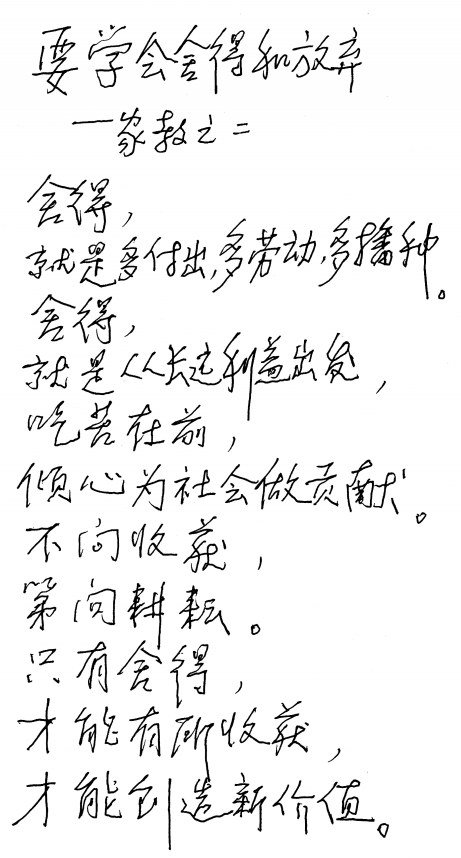 要学会舍得和放弃
一家教之二
舍得，
就是多付出，多劳动，多播种。
舍得，
就是从长远利益出发，
吃苦在前，
倾心为社会做贡献。
不问收获，
第问耕耘。
只有舍得，
才能有所收获，
才能创造新价值。